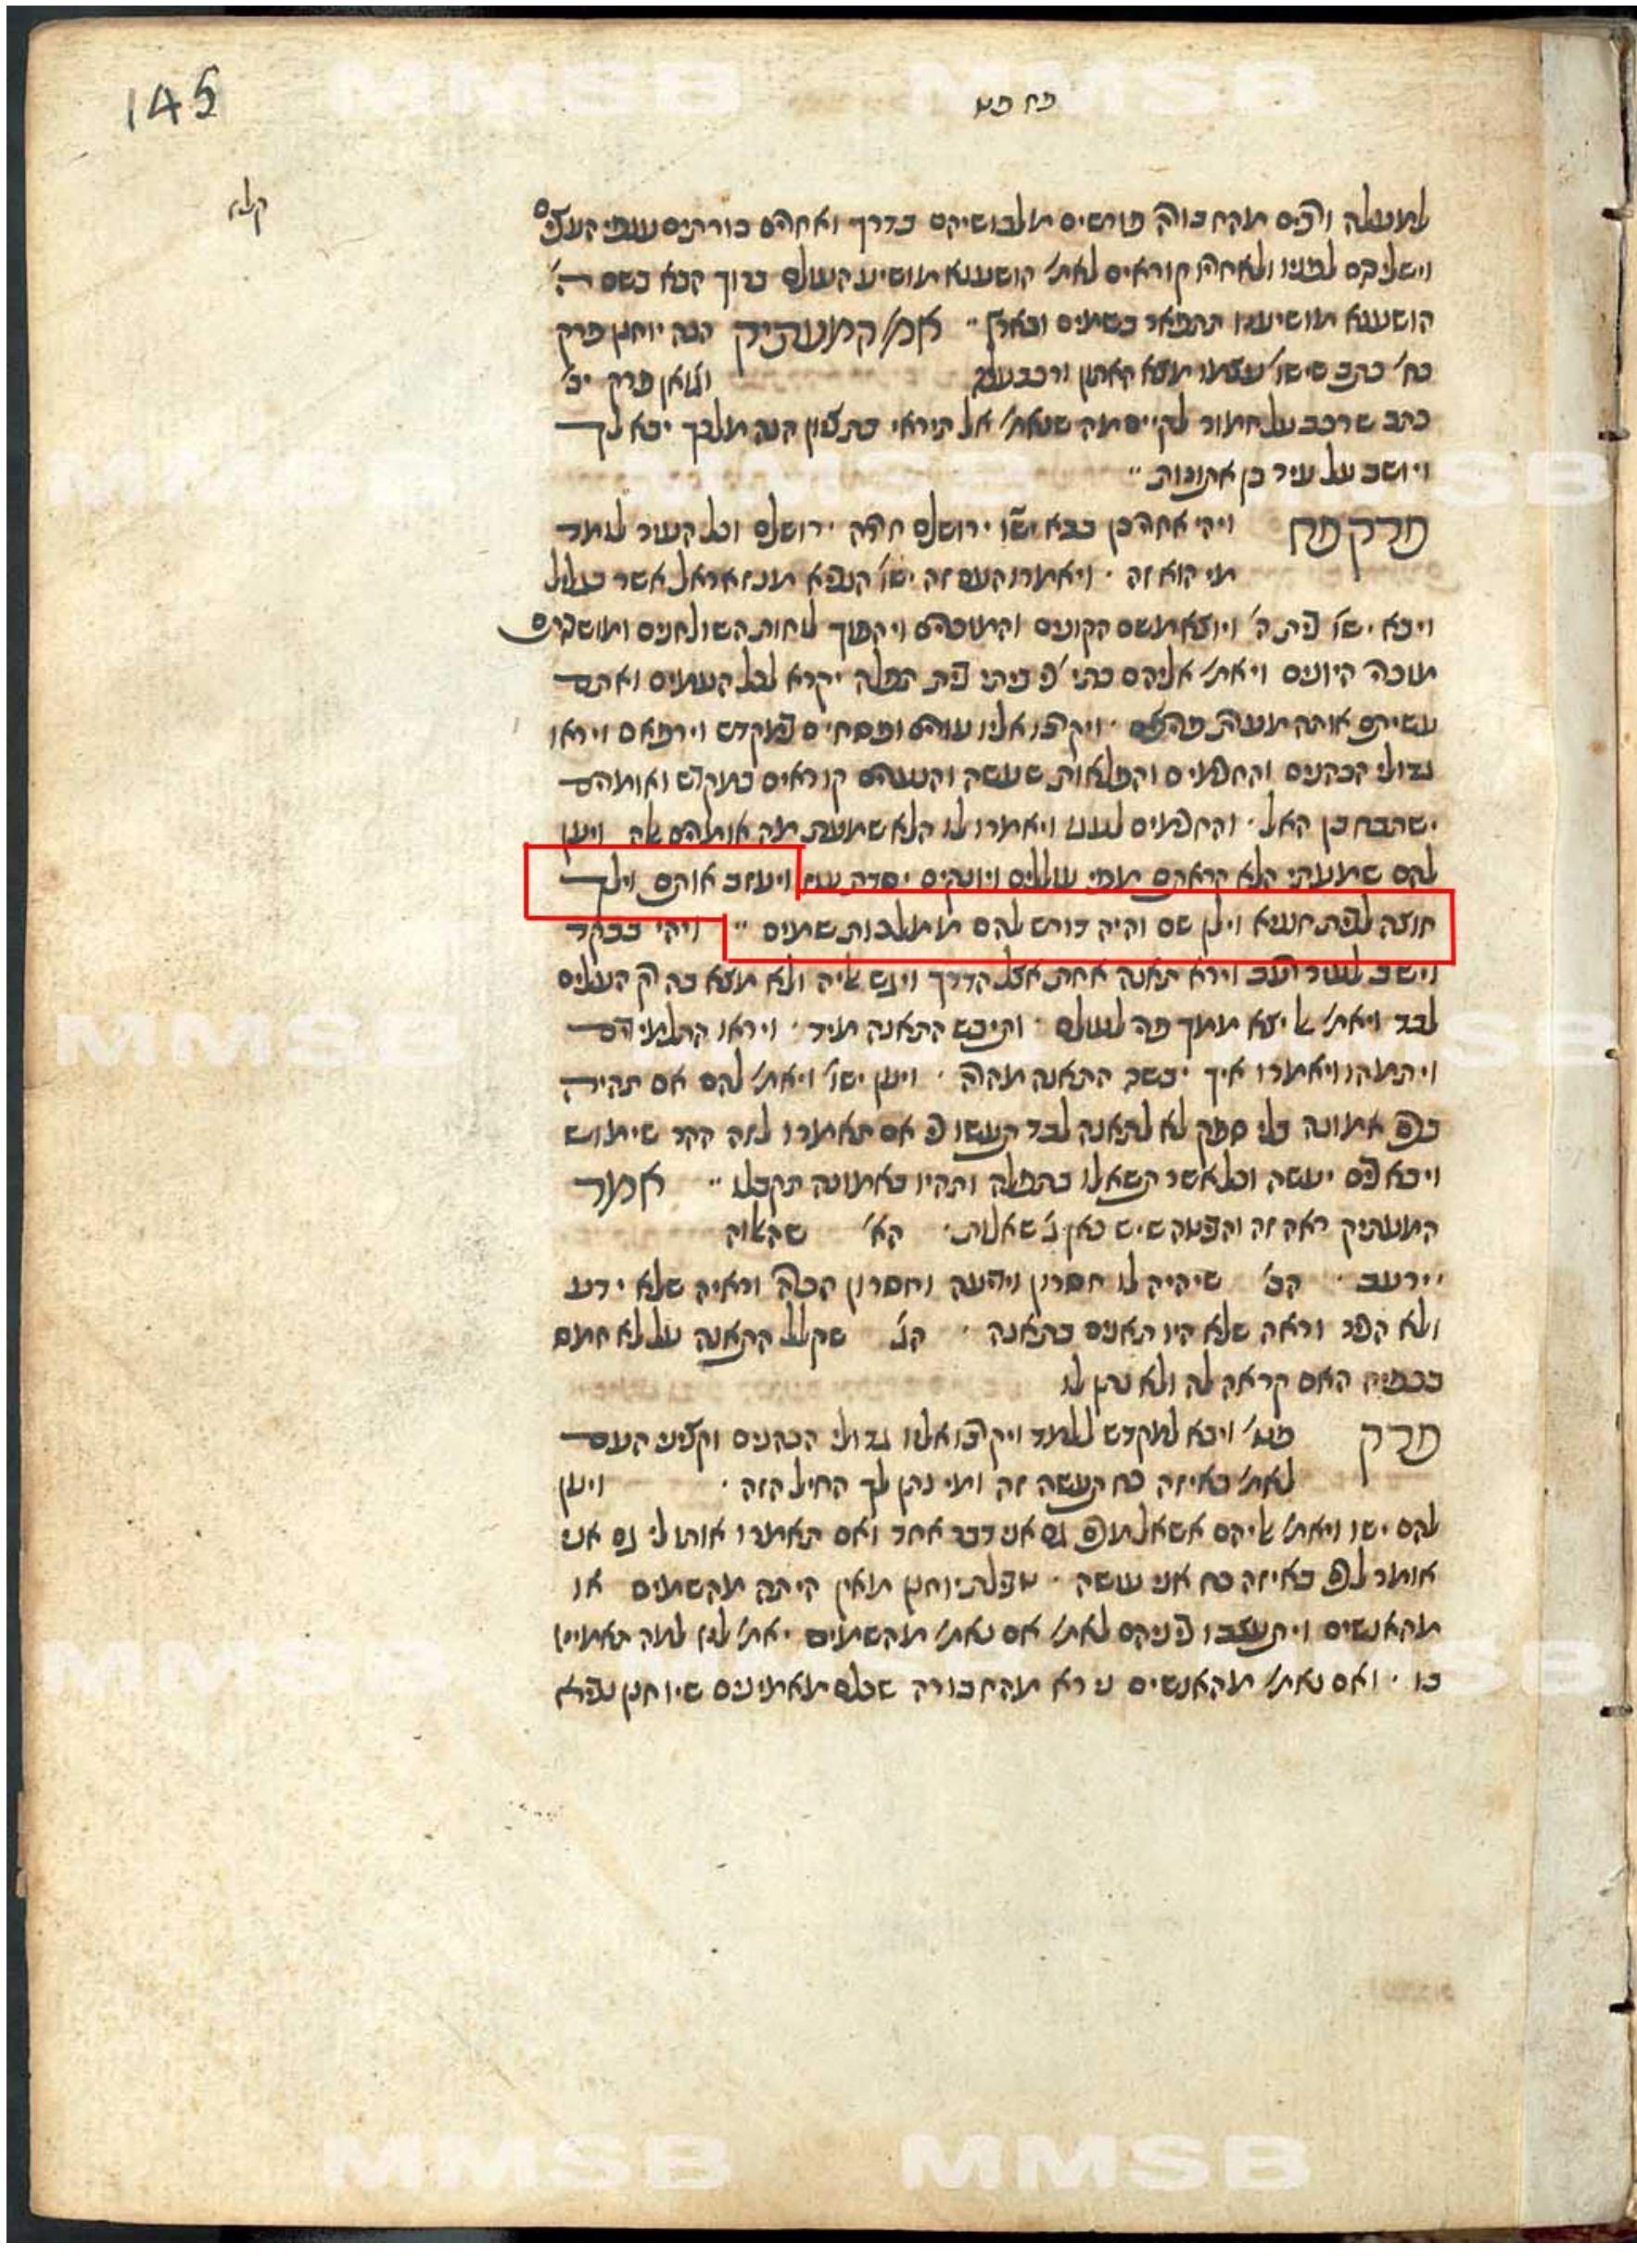 145
פח פט
קלא
למעלה ורבים מהחבורה פורשים מלבושיהם בדרך ואחרים כורתים ענפי העצים
וישליכם לפניו ולאחריו קוראים לאמ׳ הושענא מושיע העולם ברוך הבא בשם ה׳
הושענא מושיענו תתפאר בשמים ובארץ אמ׳ המעתיק הנה יוחנן פרק
כח׳ כתב שישו׳ עצמו מצא האתון ורכב עליה וגואן פרק יב׳
כתב שרכב על חמור לקיים מה שנאמ׳ אל תיראי בת ציון הנה מלכך יבא לך
ויושב על עיר בן אתונות
פרק פח ויהי אחר כן כבא ישו ירושלם חרדה ירושלם וכל העיר לגמר
מי הוא זה ויאמרו העם זה ישו׳ הנביא מנזאראל אשר בגליל
ויבא ישו׳ בית ה׳ ויוצא משם הקונים והמוכרים ויהפוך לוחות השולחנים ומושבותם
מוכרי היונים ויאמ׳ אליהם כתי׳ כי ביתי בית תפלה יקרא לכל העמים ואתם
עשיתם אותה מערת פריצים ויקרבו אליו עורים ופסחים במקדש וירפאם ויראו
גדולי הכהנים והחכמים והפלאות שעשה והנערים קוראים במקדש ואומרים
ישתבח בן האל והחכמים לעגו ויאמרו לו הלא שמעת מה אומרים אלה ויען
להם שמעתי הלא קראתם מפי עוללים ויונקים יסדת עוז ויעזב אותם וילך
חוצה לבית חנניא וילן שם והיה דורש להם ממלכות שמים ויהי בבקר
וישב לעיר רעב וירא תאנה אחת אצל הדרך ויגש אליה ולא מצא בה רק העלים
לבד ויאמ׳ אל יצא ממך פרי לעולם ותיבש התאנה מיד ויראו התלמידים
ויתמהו ויאמרו איך יבשה התאנה מהרה ויען ישו׳ ויאמ׳ להם אם תהיה
בכם אמונה בלי ספק לא לתאנה לבד תעשו כי אם תאמרו לזה ההר שימוש
ויבא בים יעשה וכל אשר תשאלו בתפלה ותהיו באמונה תקבלו אמר
המעתיק ראה זה והבינה שיש כאן ג׳ שאלות הא׳ שהאלוה
ירעב הב׳ שיהיה לו חסרון ידיעה וחסרון הכרה וראיה שלא ידע
ולא הכיר וראה שלא היו תאנים בתאנה הג׳ שקלל התאנה על לא חמס
בכפיה האם קראה לה ולא נתן לו
פרק פט׳ ויבא למקדש ללמד ויקרבו אליו גדולי הכהנים וקציני העם
לאמ׳ באיזה כח תעשה זה ומי נתן לך החיל הזה ויען
להם ישו ויאמ׳ אליהם אשאל מכם גם אני דבר אחד ואם תאמרו אותו לי גם אני
אומר לכם באיזה כח אני עושה טבילת יוחנן מאין היתה מהשמים או
מהאנשים ויתעצבו ביניהם לאמ׳ אם נאמ׳ מהשמים יאמ׳ לנו למה תאמינו
בו ואם נאמ׳ מהאנשים נירא מהחבורה שכלם מאמינים שיוחנן נביא